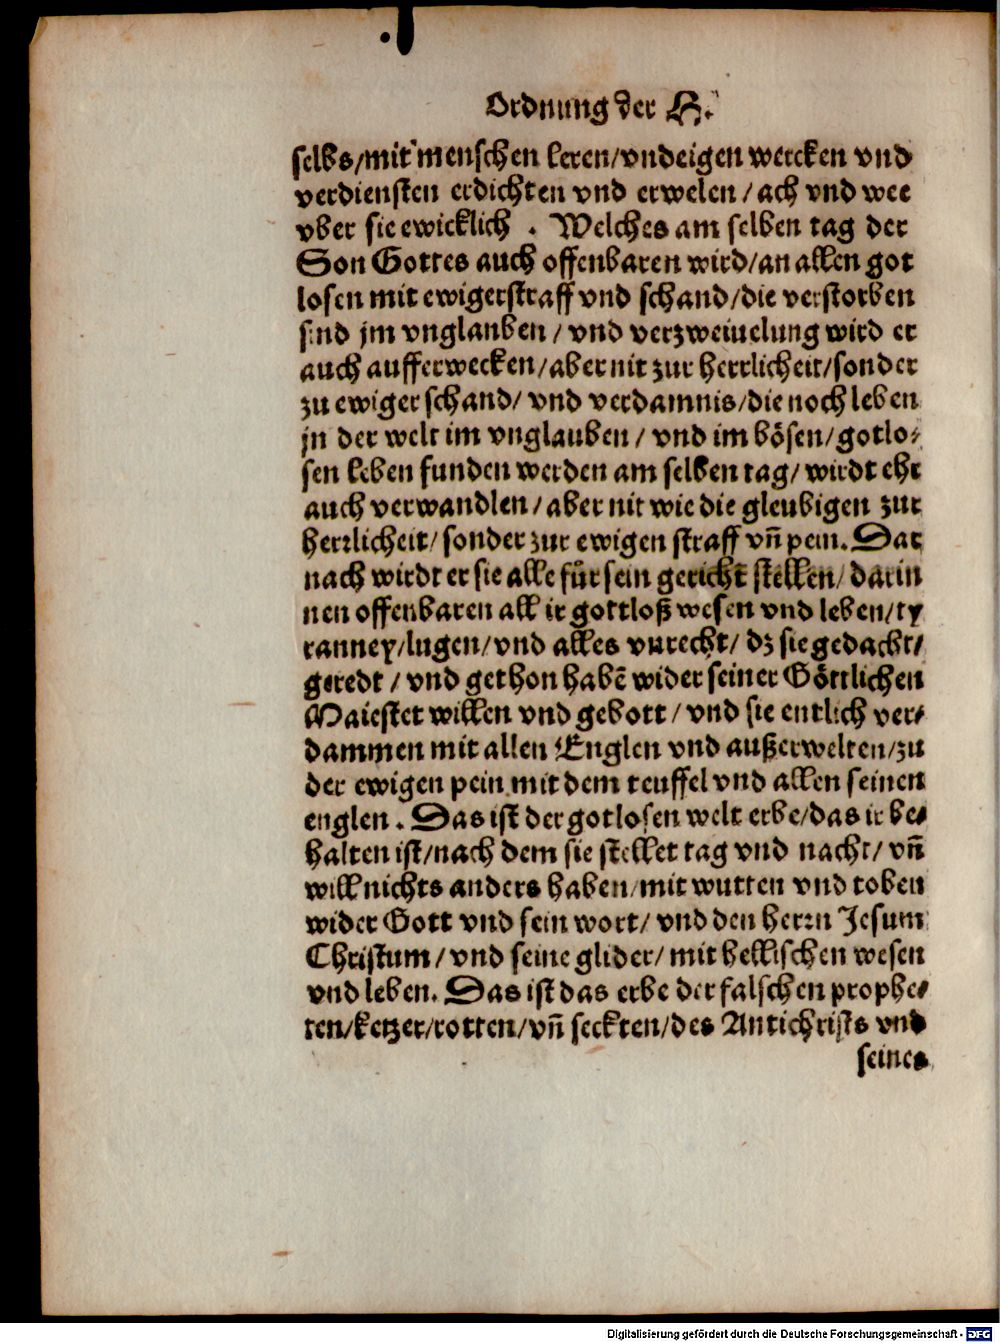 Ordnung der H.
selbs/mit menschen leren/vnd eigen wercken vnd
verdiensten erdichten vnd erwelen/ach vnd wee
vber sie ewicklich . Welches am selben tag der
Son Gottes auch offenbaren wird/an allen got
losen mit ewiger straff vnd schand/die verstorben
sind jm vnglauben/vnd verzweiuelung wird er
auch aufferwecken/aber nit zur herrlicheit/sonder
zu ewiger schand/vnd verdamnis/die noch leben
jn der welt im vnglauben/vnd im bösen/gotlo-
sen leben funden werden am selben tag/wirdt ehr
auch verwandlen/aber nit wie die gleubigen zur
herrlicheit/sonder zur ewigen straff vñ pein. Dar
nach wirdt er sie alle für sein gericht stellen/darin
nen offenbaren all ir gottloß wesen vnd leben/ty
ranney/lugen/vnd alles vnrecht/dz sie gedacht/
geredt/vnd gethon habẽ wider seiner Göttlichen
Maiestet willen vnd gebott/vnd sie entlich ver-
dammen mit allen Englen vnd außerwelten/zu
der ewigen pein mit dem teuffel vnd allen seinen
englen. Das ist der gotlosen welt erbe/das ir be-
halten ist/nach dem sie stellet tag vnd nacht/vñ
will nichts anders haben/mit wutten vnd toben
wider Gott vnd sein wort/vnd den herrn Jesum
Christum/vnd seine glider/mit hellischen wesen
vnd leben. Das ist das erbe der falschen prophe-
ten/ketzer/rotten/vñ seckten/des Antichrists vnd
seines
Digitalisierung gefördert durch die Deutsche Forschungsgemeinschaft - DFG